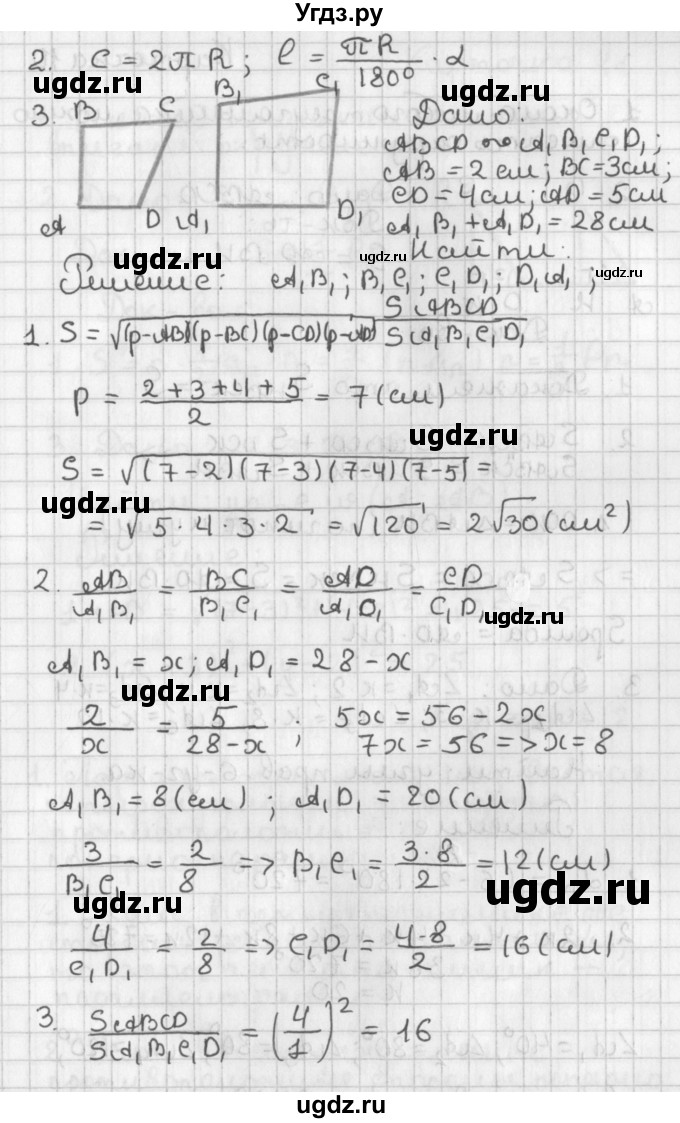 Угдз.ру
2. C = 2πR; ℓ = πR/180° · α
ugdz.ru ugdz.ru
3. B C B₁ C₁ A D A₁ D₁
Дано:
ABCD ∾ A₁B₁C₁D₁;
AB = 2 см; BC = 3 см;
CD = 4 см; AD = 5 см
A₁B₁ + A₁D₁ = 28 см
ugdz.ru Найти:
Решение: A₁B₁; B₁C₁; C₁D₁; D₁A₁; ugdz.ru
SABCD/SA₁B₁C₁D₁
1. S = √(p-AB)(p-BC)(p-CD)(p-AD)
p = (2+3+4+5)/2 = 7 (см)
ugdz.ru
S = √(7-2)(7-3)(7-4)(7-5) =
ugdz.ru
= √5·4·3·2 = √120 = 2√30 (см²)
2. AB/A₁B₁ = BC/B₁C₁ = AD/A₁D₁ = CD/C₁D₁
ugdz.ru
A₁B₁ = x; A₁D₁ = 28 - x
ugdz.ru
2/x = 5/(28-x); 5x = 56 - 2x
7x = 56 => x = 8
A₁B₁ = 8 (см); A₁D₁ = 20 (см)
3/B₁C₁ = 2/8 => B₁C₁ = 3·8/2 = 12 (см)
ugdz.ru ugdz.ru
4/C₁D₁ = 2/8 => C₁D₁ = 4·8/2 = 16 (см)
3. SABCD/SA₁B₁C₁D₁ = (4/1)² = 16
ugdz.ru
ugdz.ru